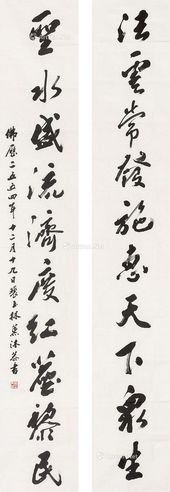 法雲常發施惠天下衆生
聖水盛流濟度紅塵黎民
佛歷二五五四年十二月十九日張玉林薰沐恭書